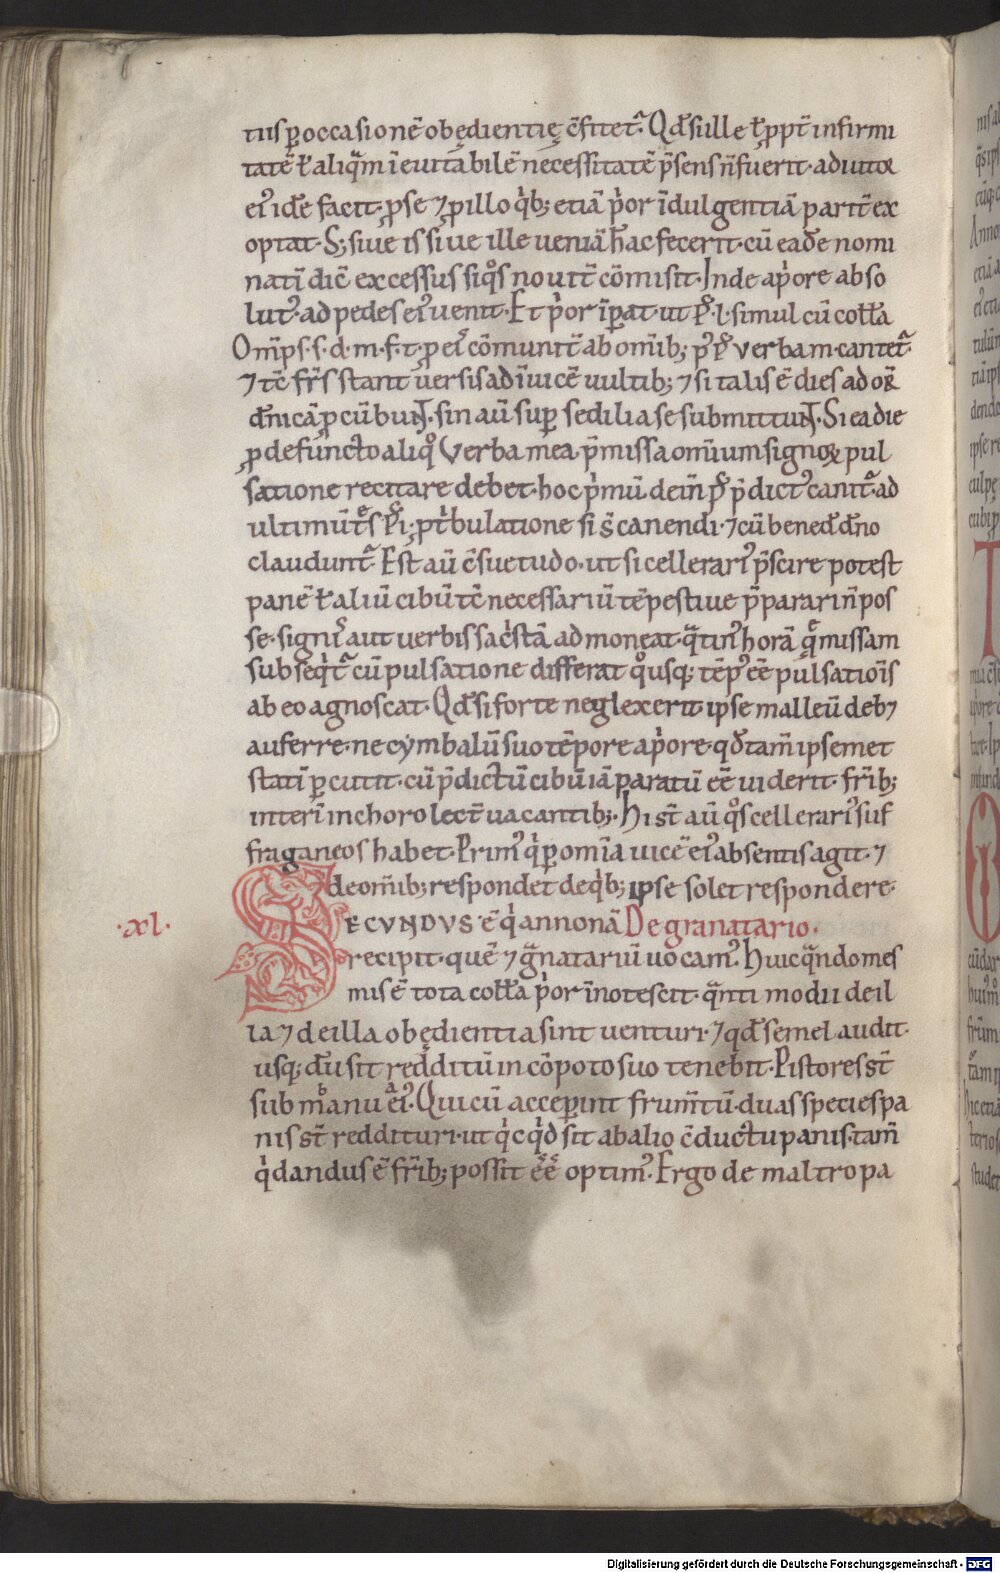 tiis ꝑ occasionē obędientię c̄fitet᷑. Qd̄ si ille ł ꝓpt̄ infirmi
tatē ł aliqͣm īeuitabilē necessitatē p̄sens n̄ fuerit · adiutor
ei᷒ idē facit · ꝓ se ⁊ ꝓ illo qͥb; etiā pͥor īdulgentiā parit̄ ex
optat · S; siue is siue ille ueniā hac fecerit · cū eadē nomi
natī dic̄ excessus siqͦs nouit̄ cōmisit · Inde a pͥore abso
lut᷒ · ad pedes ei᷒ uenit · Et pͥor īꝑat · ut pͥ · l · simul cū cott̄a
Om̄ps · s · d · m · f · t · ꝓ ei᷒ cōmunit̄ ab om̄ib; p᷒ pͥ Verba m · cantet᷑ ·
⁊ tē fr̄s stant uersis ad īuicē uultib; ⁊ si talis ē dies ad or̄
dn̄icā ꝓcūbunt · sin aū suꝑ sedilia se submittunt · Si ea die
ꝓ defuncto aliqͦ Verba mea · p̄missa om̄ium signoꝝ pul
satione recitare debet · hoc pͥmū · dein̄ pͥ p̄dict᷒ canit᷑ · ad
ultimū ps̄i · ꝓ tͥbulatione si s̄ canendi · ⁊ cū bened̄ dn̄o
claudunt᷑ · Est aū c̄suetudo · ut si cellerari᷒ p̄scire potest
panē ł aliū cibū tē necessariū tēpestiue p̄parari n̄ pos
se · signi᷒ aut uerbis sac̄stā admoneat · qͣtin᷒ horā · quę missam
subseqͥt᷑ cū pulsatione differat qͦusq; tēp᷒ eē pulsatiōis
ab eo agnoscat · Qd̄ si forte neglexerit ipse malleū deb⁊
auferre · ne cymbalū suo tēpore a pͥore · qd̄ tam̄ ipsemet
statī ꝑcutit · cū p̄dictū cibū iā paratū eē uiderit · fr̄ib;
interī in choro lect̄ uacantib; · Hi st̄ aū qͦs cellerari᷒ suf
fraganeos habet · Prim᷒ qͥ ꝑ om̄ia uicē ei᷒ absentis agit · ⁊
de om̄ib; respondet de qͥb; ipse solet respondere ·
·xl· SECVNDVS · ē qͥ annonā De granatario ·
recipit · quē ⁊ gͣnatariū uocam᷒ · Huic qͣndo mes
mis ē tota coll̄a pͥor īnotescit · qͣnti modii de il
la ⁊ de illa obędientia sint uenturi · ⁊ qd̄ semel audit ·
usq; dū sit redditū in cōpoto suo tenebit · Pistores st̄
sub manu ei᷒ · Qui cū acceperint frum̄tū · duas species pa
nis st̄ reddituri · ut qͥcqͥd sit ab alio c̄ductu panis · tam̄
qͥ dandus ē fr̄ib; possit eē optim᷒ · Ergo de maltro pa
Digitalisierung gefördert durch die Deutsche Forschungsgemeinschaft - DFG